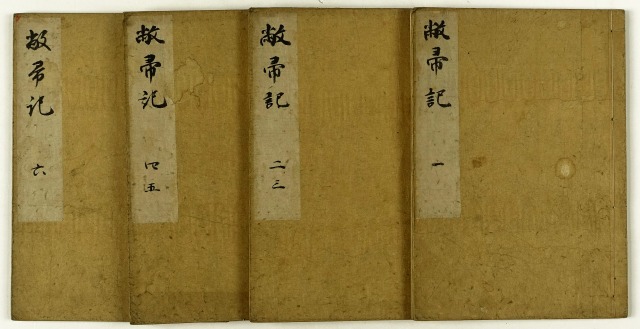 敝帚記 一
敝帚記 二三
敝帚記 四五
敝帚記 六